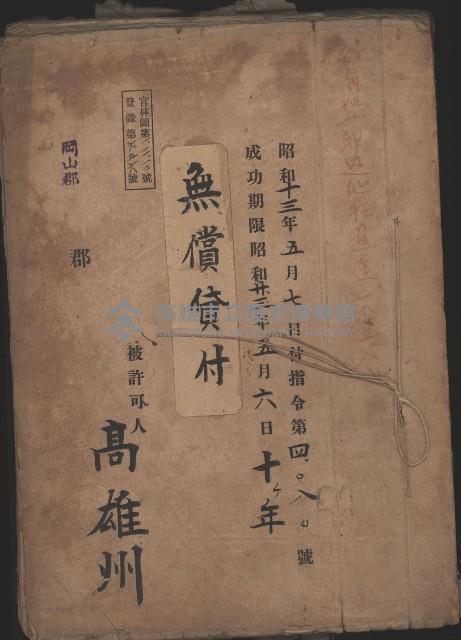 昭和十三年五月七日付指令第四〇八〇號
成功期限昭和廿三年五月六日
十ケ年
無償貸付
官林圖第 號
登錄第 號
岡山郡
郡
被許可人
高雄州
高雄市立歷史博物館